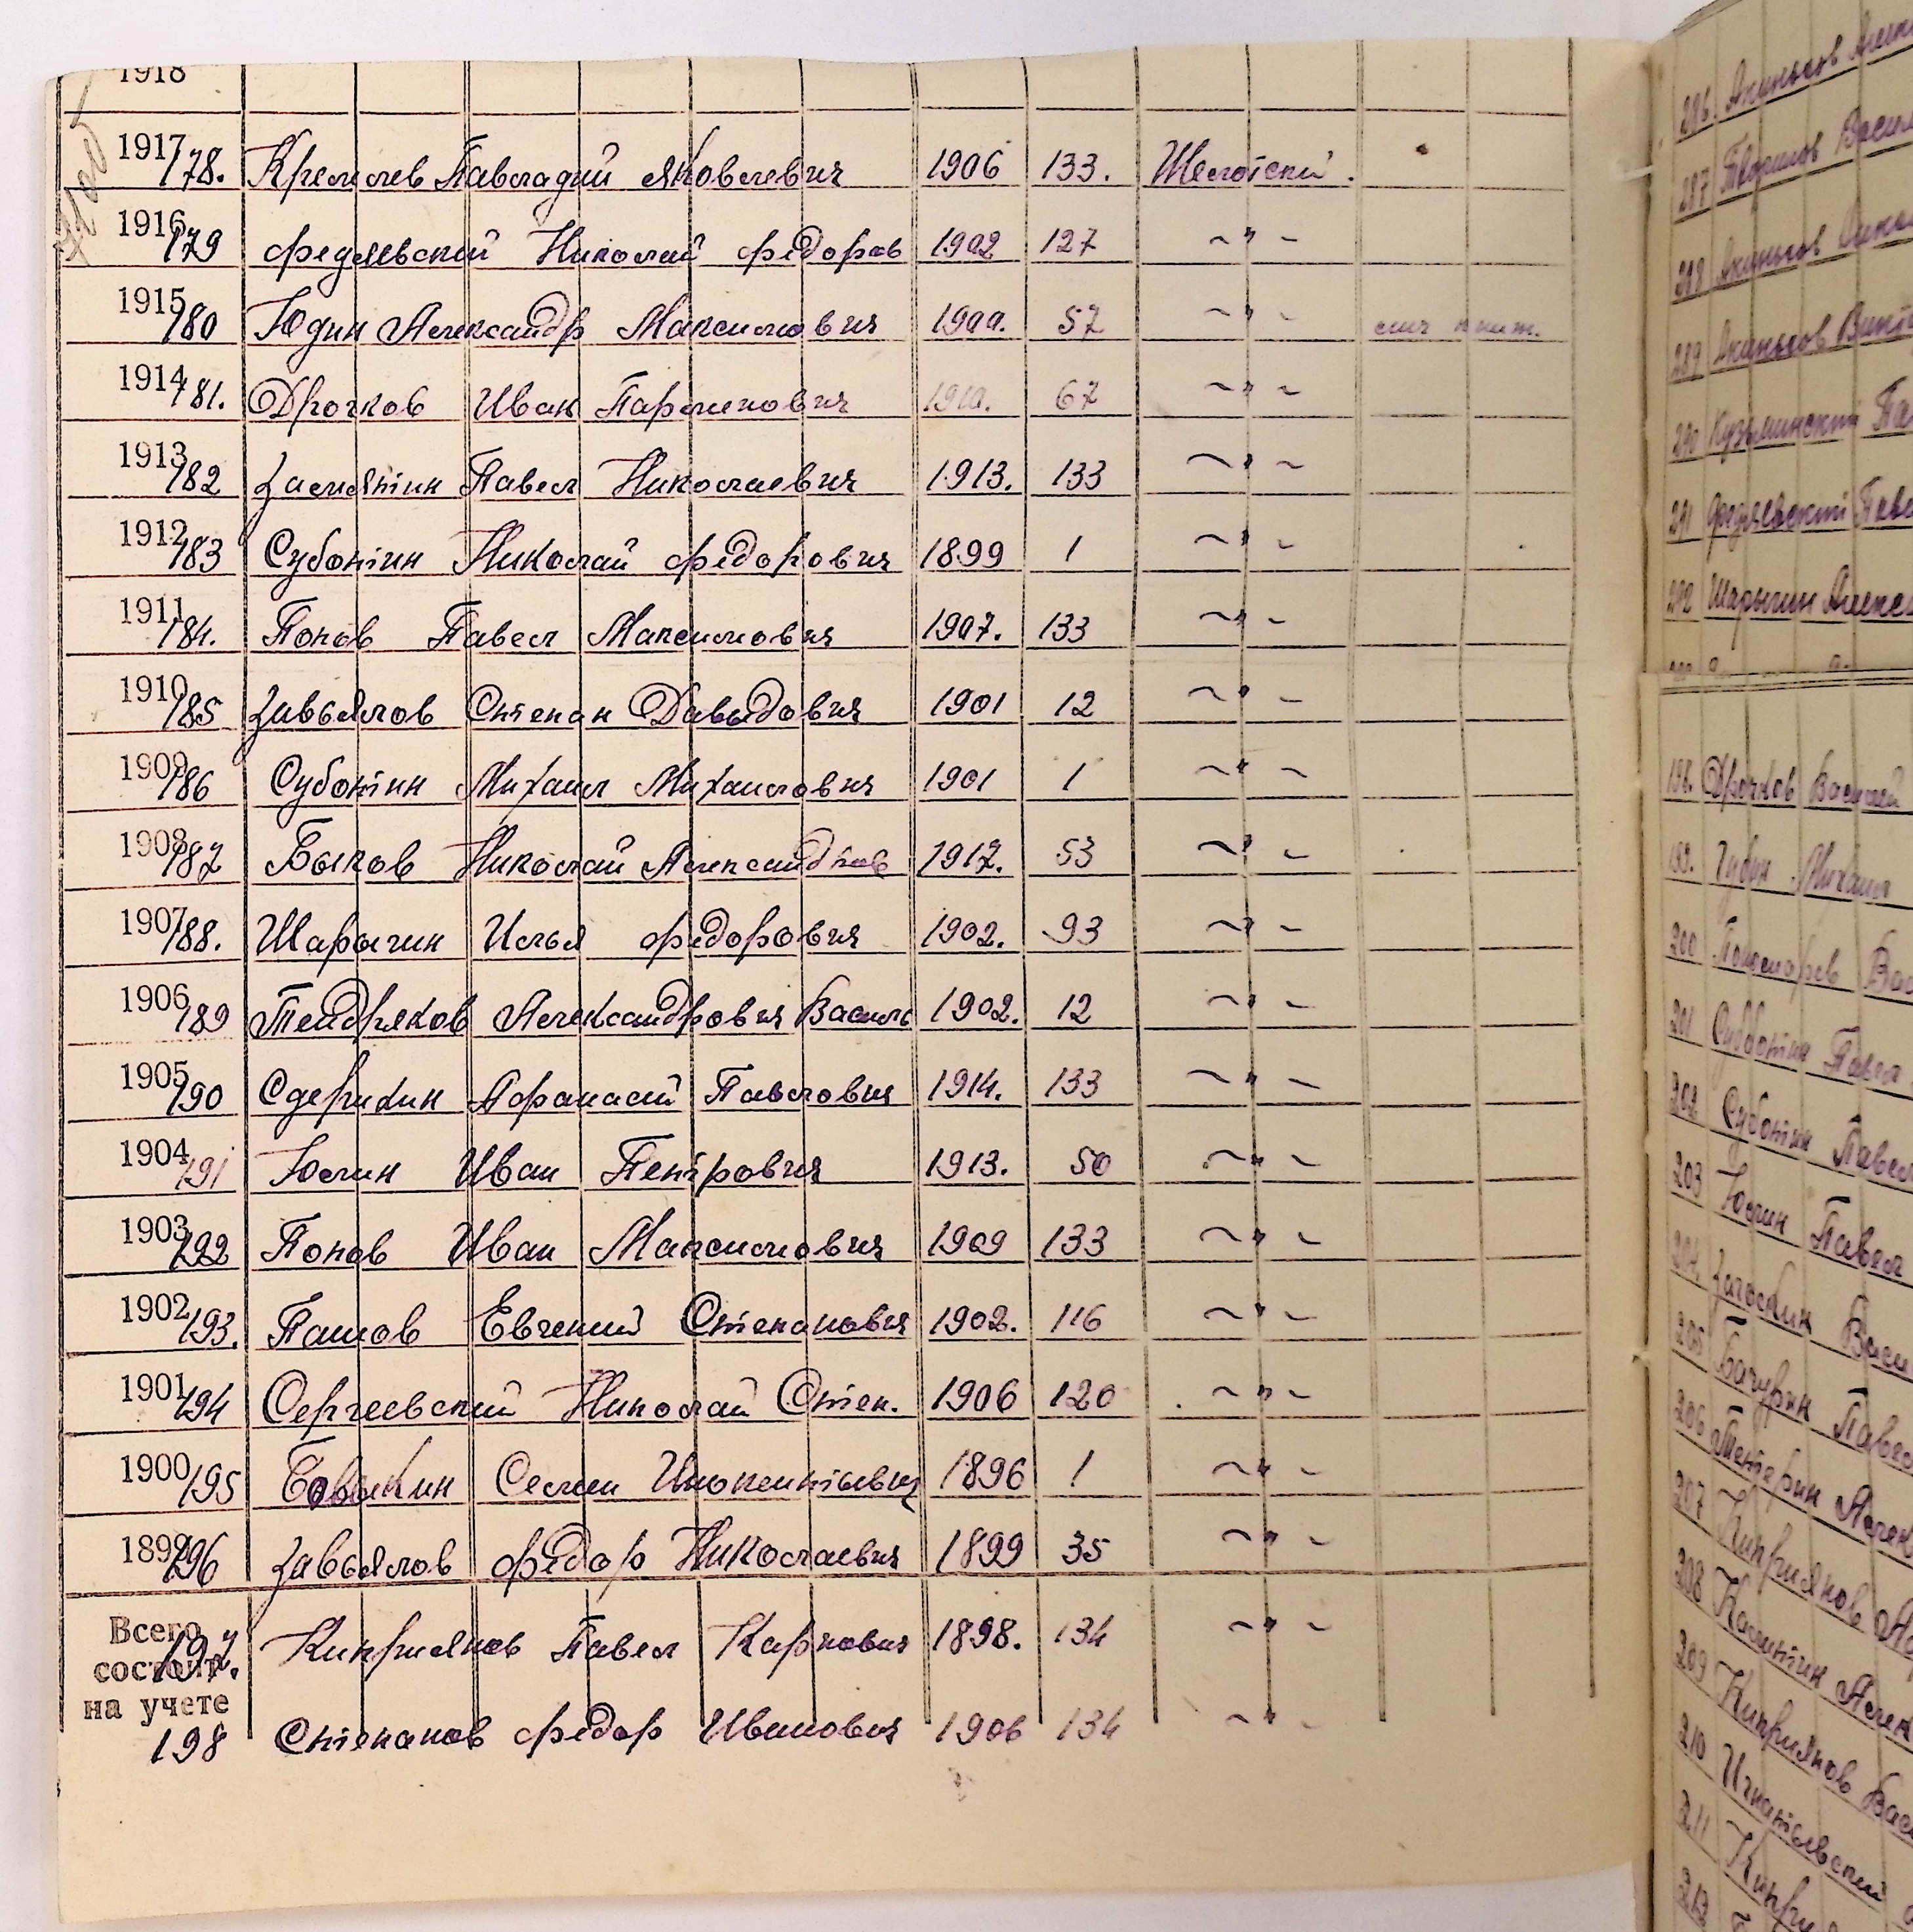 1918
1917 178. Кремлев Павладий Яковлевич 1906 133. Шелотский.
1916 179 Федяевский Николай Федоров 1902 127 ~ " ~
1915 180 Юдин Александр Максимович 1900. 57 ~ " ~
1914 181. Дрочков Иван Парменович 1910. 67 ~ " ~
1913 182 Замятин Павел Николаевич 1913. 133 ~ " ~
1912 183 Суботин Николай Федорович 1899 1 ~ " ~
1911 184. Попов Павел Максимович 1907. 133 ~ " ~
1910 185 Завьялов Степан Давыдович 1901 12 ~ " ~
1909 186 Суботин Михаил Михаилович 1901 1 ~ " ~
1908 187 Быков Николай Александров 1917. 53 ~ " ~
1907 188. Шарыгин Илья Федорович 1902. 93 ~ " ~
1906 189 Тендряков Александрович Василь 1902. 12 ~ " ~
1905 190 Сдерихин Афанасий Павлович 1914. 133 ~ " ~
1904 191 Юмин Иван Петрович 1913. 50 ~ " ~
1903 192 Попов Иван Максимович 1909 133 ~ " ~
1902 193. Пашов Евгений Степанович 1902. 116 ~ " ~
1901 194 Сергеевский Николай Степ. 1906 120 ~ " ~
1900 195 Бовыкин Семен Инокентьевич 1896 1 ~ " ~
1899 196 Завьялов Федор Николаевич 1899 35 ~ " ~
Всего состоит на учете
197. Киприянов Павел Карпович 1898. 134 ~ " ~
198 Степанов Федор Иванович 1906 134 ~ " ~
286. Акиньхов
287 Василь
288 Акиньхов
289 Акиньхов
290 Кузьминский
291 Федяевский Паве
292 Шарыгин Алекса
198. Дрочков Василий
199. Губин Михаил
200 Пономарев Вас
201 Субботин Павел
202 Суботин Павел
203 Юмин Павел
204. Загоскин Васи
205 Бачурин Павел
206 Алек
207 Киприянов
208 Алек
209 Киприянов Вас
210 Игнатьевский
211 Кипри
212